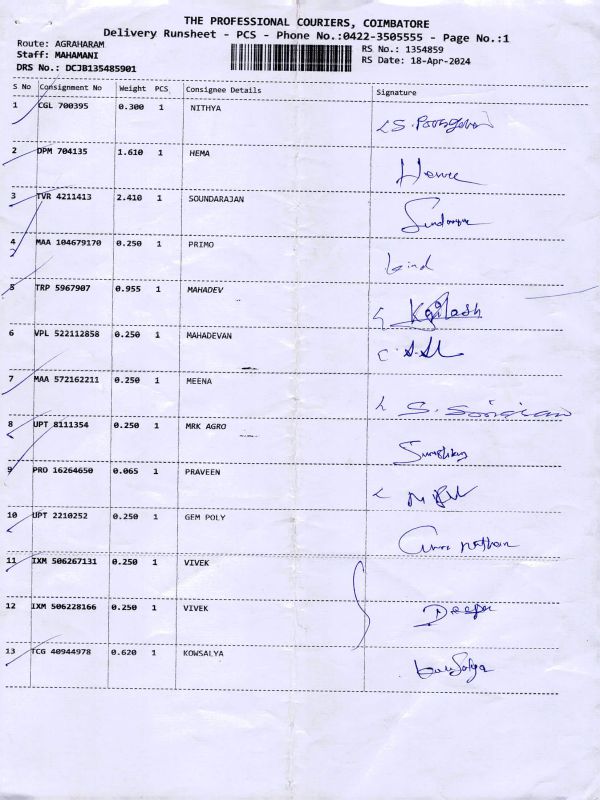 THE PROFESSIONAL COURIERS, COIMBATORE
Delivery Runsheet - PCS - Phone No.:0422-3505555 - Page No.:1
Route: AGRAHARAM
Staff: MAHAMANI
DRS No.: DCJB135485901
RS No.: 1354859
RS Date: 18-Apr-2024
S No Consignment No Weight PCS Consignee Details Signature
1 CGL 700395 0.300 1 NITHYA
2 DPM 704135 1.610 1 HEMA
3 TVR 4211413 2.410 1 SOUNDARAJAN
4 MAA 104679170 0.250 1 PRIMO
5 TRP 5967907 0.955 1 MAHADEV Kailash
6 VPL 522112858 0.250 1 MAHADEVAN
7 MAA 572162211 0.250 1 MEENA
8 UPT 8111354 0.250 1 MRK AGRO
9 PRO 16264650 0.065 1 PRAVEEN
10 UPT 2210252 0.250 1 GEM POLY
11 IXM 506267131 0.250 1 VIVEK
12 IXM 506228166 0.250 1 VIVEK Deepa
13 TCG 40944978 0.620 1 KOWSALYA